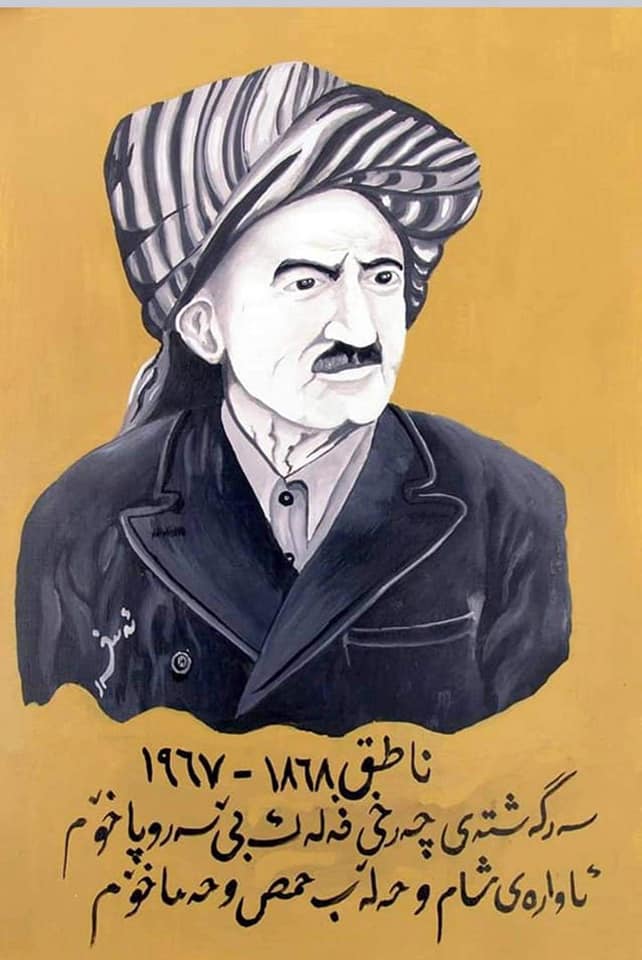 ناطق ١٨٦٨ - ١٩٦٧
سەرگەشتەی چەرخی فەلەك بێ سەروپا خۆم
ئاوارەی شام و حەلەب حمص و حەما خۆم